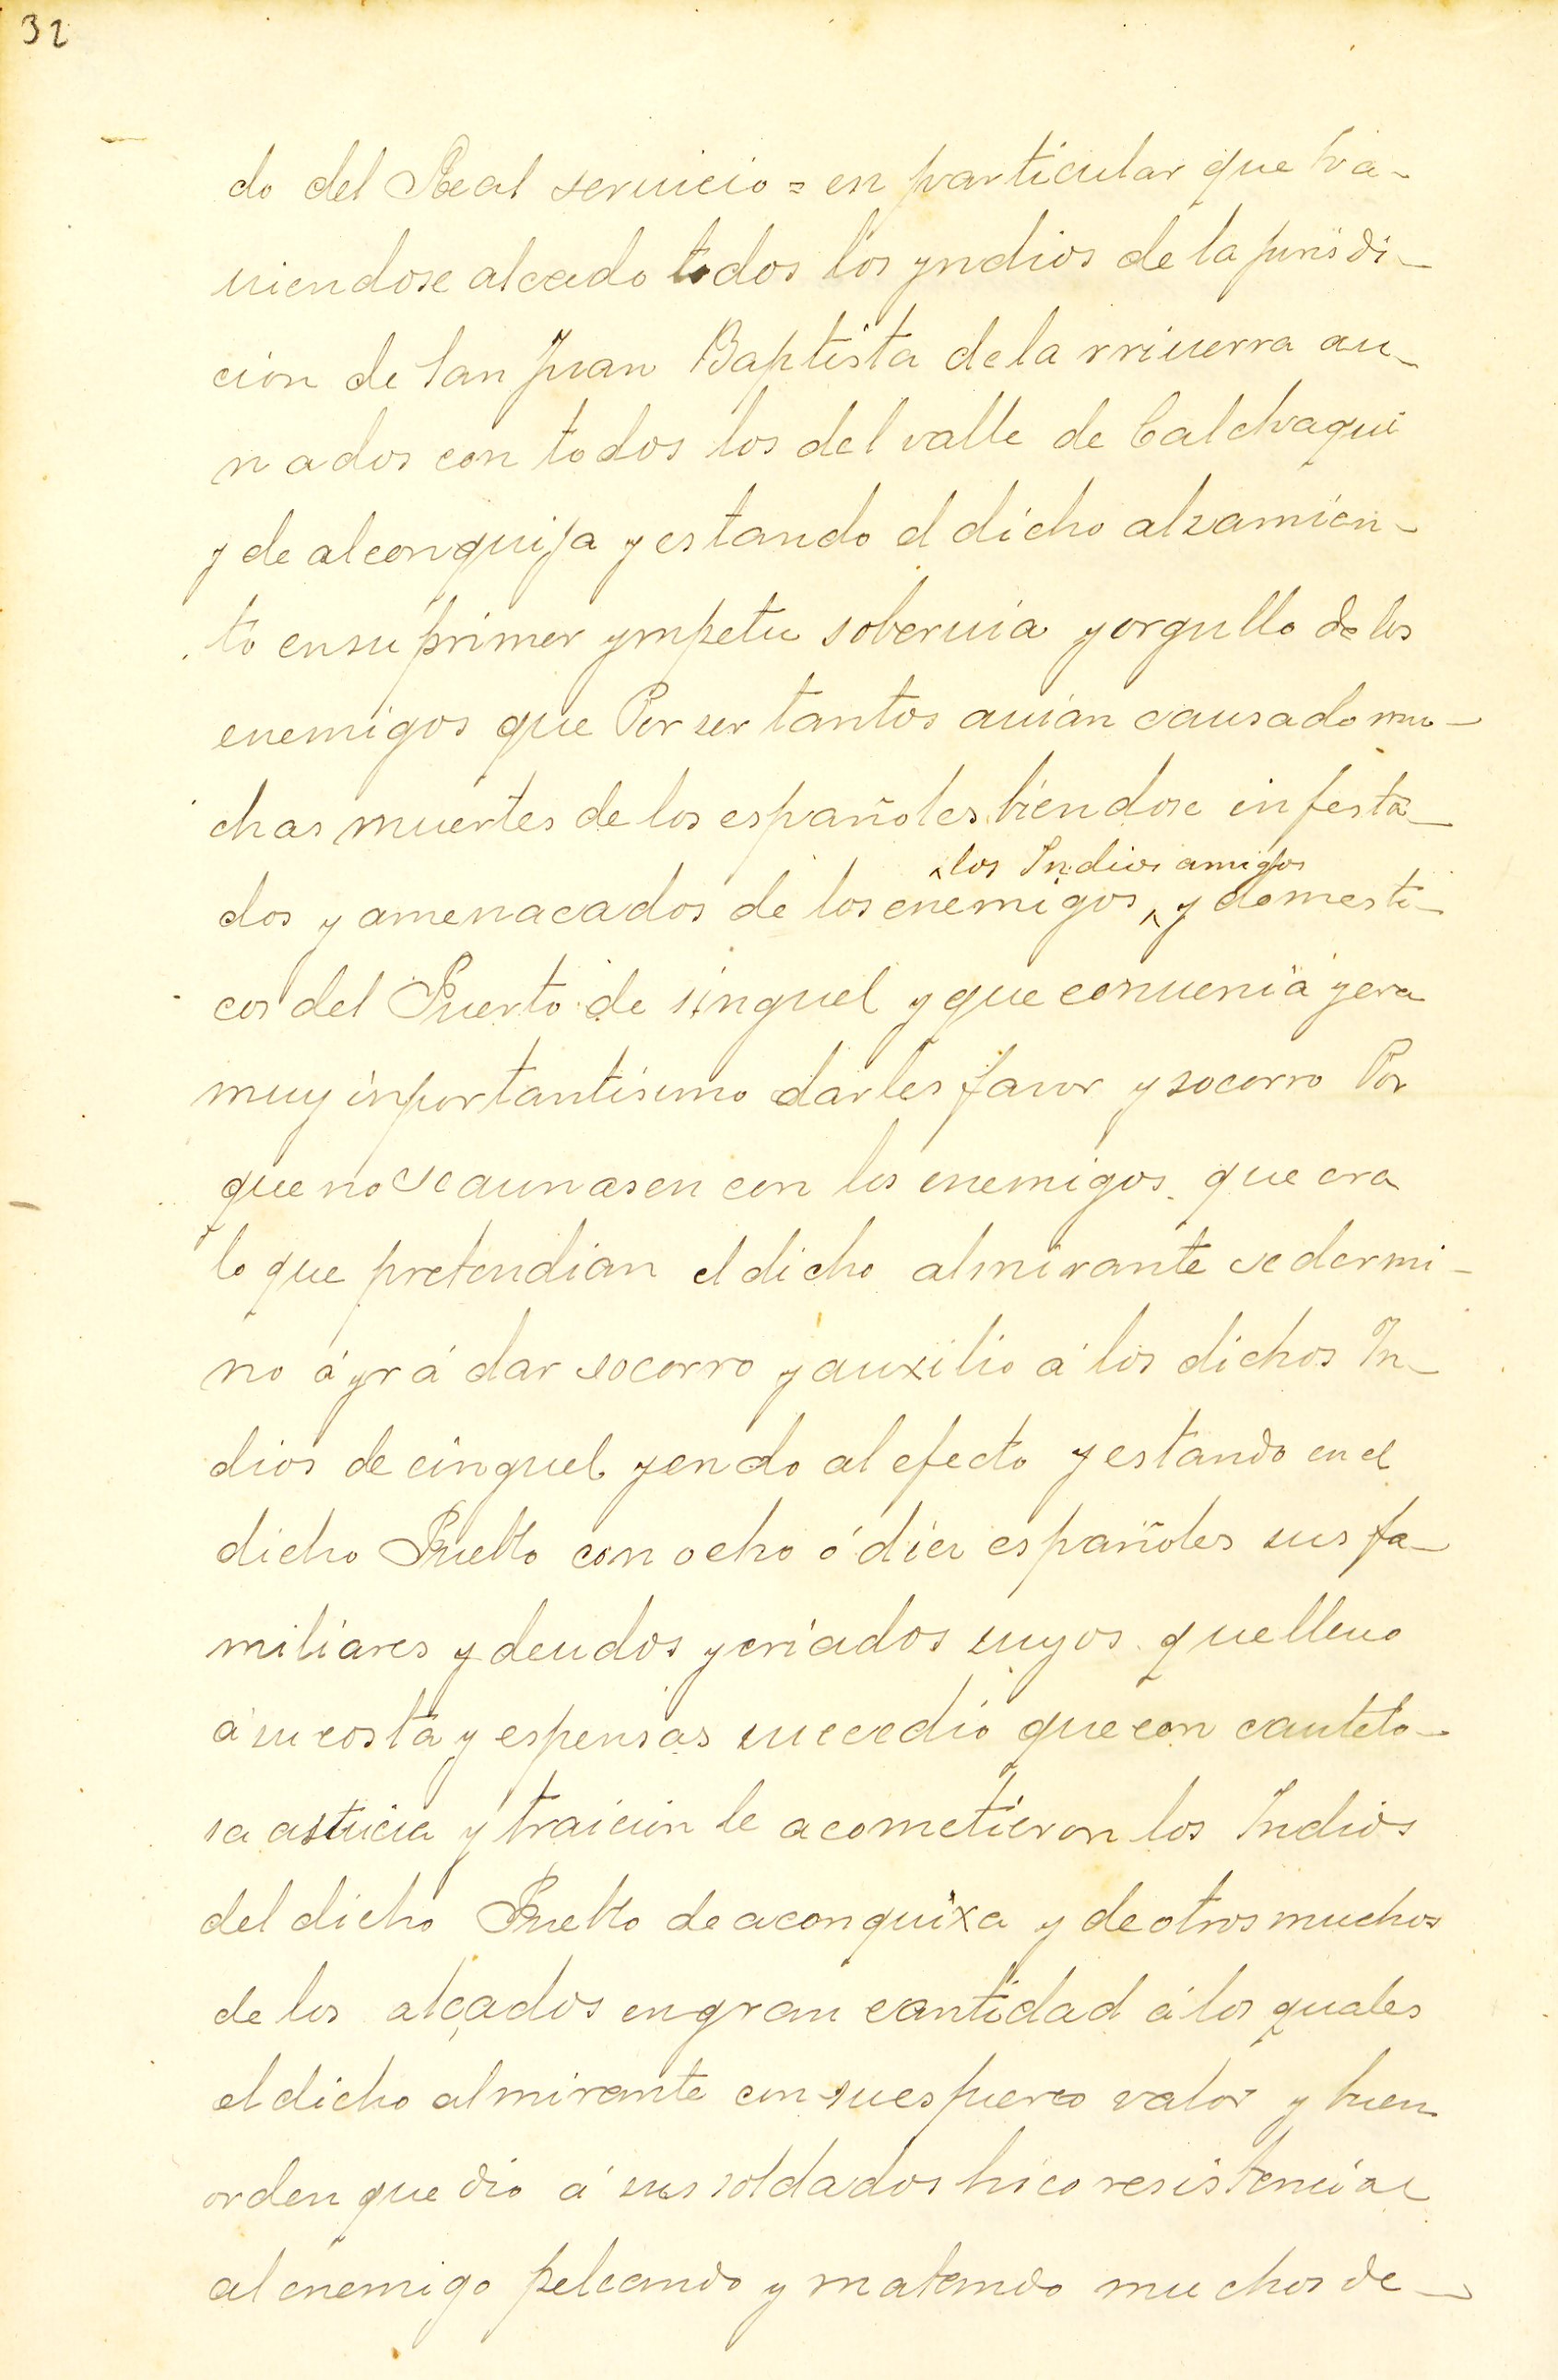 32
do del Real seruicio = en particular que ha-
uiendose alcado todos los yndios de la jurisdi-
cion de San Juan Baptista de la rriuerra au-
nados con todos los del valle de Calchaqui
y de alconquija y estando el dicho alzamien-
to en su primer ympetu soberuia y orgullo de los
enemigos que Por ser tantos auian causado mu-
chas muertes de los españoles biendose infesta-
los Indios amigos
dos y amenacados de los enemigos, y domesti-
cos del Puerto de singuel y que conuenia y era
muy inportantisimo darles favor y socorro Por
que no se aunasen con los enemigos. que era
lo que pretendian el dicho almirante se dermi-
no á yr á dar socorro y auxilio á los dichos In-
dios de cinguel yendo al efecto y estando en el
dicho Pueblo con ocho ó diez españoles sus fa-
miliares y deudos y criados suyos que lleuo
á su costa y espensas succedio que con cautelo-
sa astucia y traicion le acometieron los Indios
del dicho Pueblo de aconquixa y de otros muchos
de los alçados en gran cantidad á los quales
el dicho almirante con su espuerco valor y buen
orden que dio á sus soldados hico resistencia
al enemigo peleando y matando muchos de-